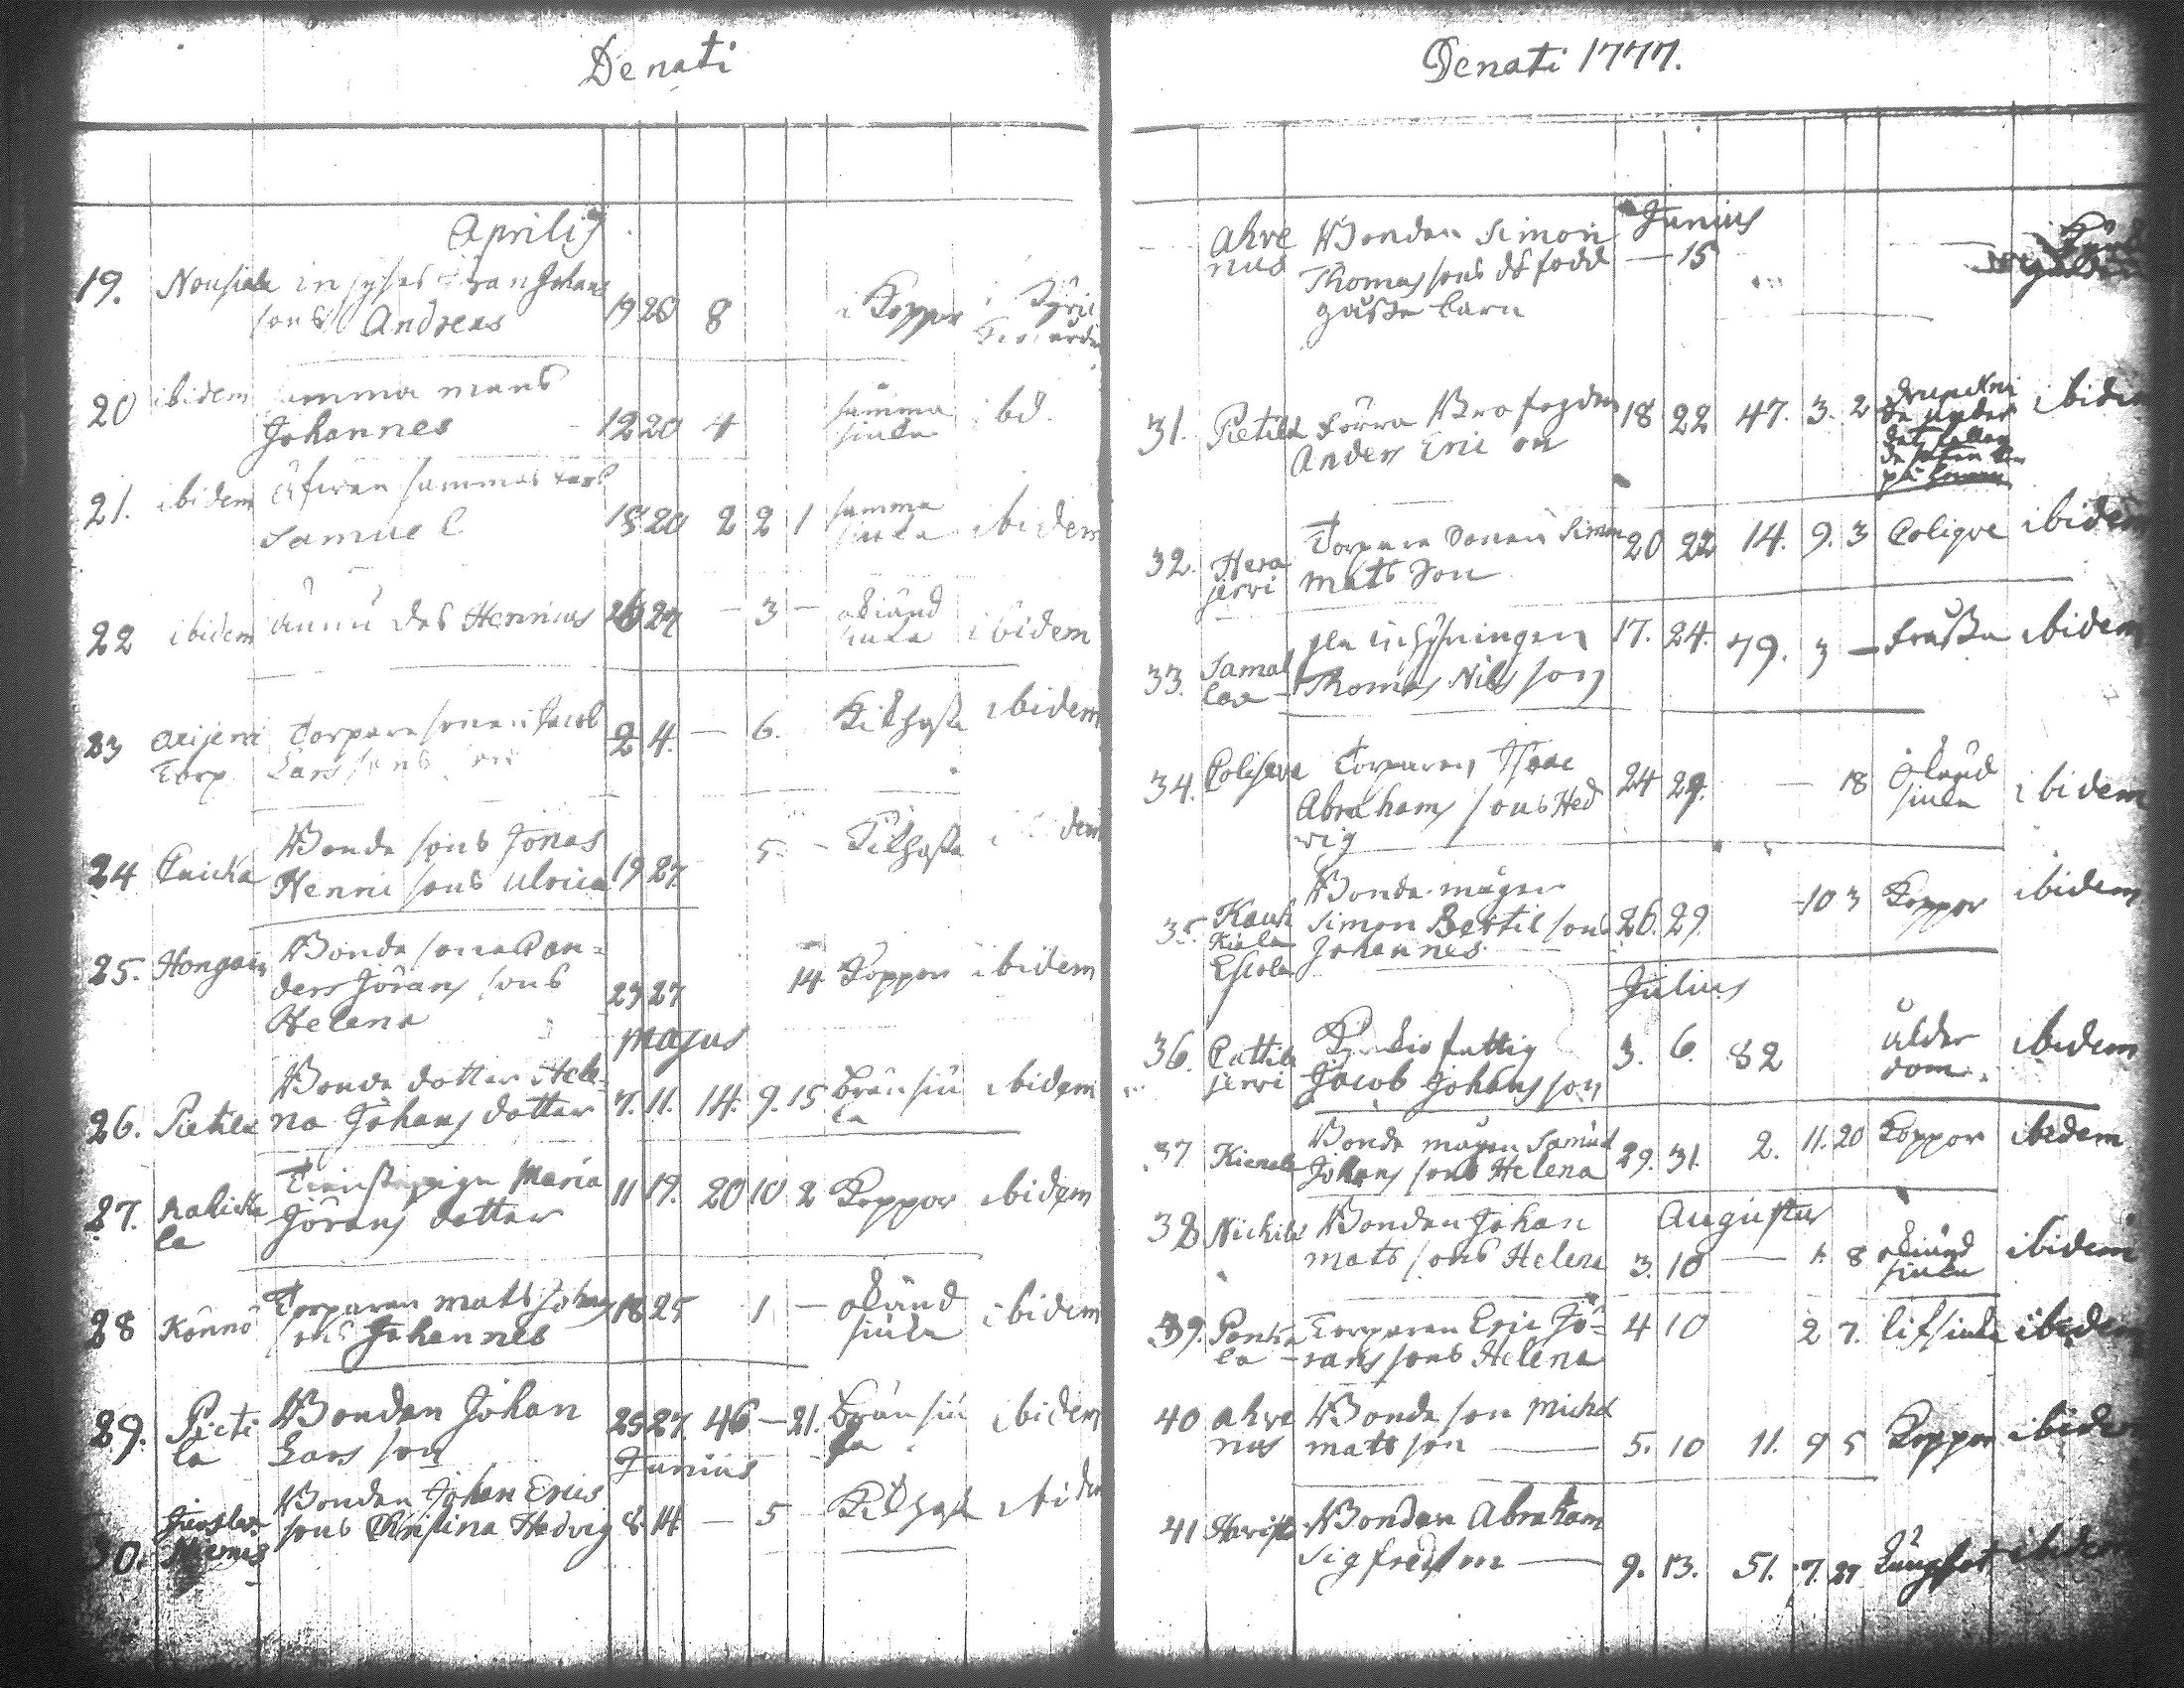 Denati
Aprilis
19. Nousiala inhyses Jöran Johans
sons Andreas 19 20 8 i Koppor i Kyrko
20 ibidem samma mans
Johannes 12 20 4 samma siuka ibd.
21. ibidem äfwen sammas
Samuel 15 20 2 2 1 samma siuka ibidem
22 ibidem ännu des Henricus 26 27 – 3 – okiänd siuka ibidem
23 Torp. Torpare sonen Jacob
Lars sons 2 4. – 6. Kikhosta ibidem
24 Bonde sons Jonas
Henric sons Ulrica 19 27. 5. – Kikhosta ibidem
25. Hongain Bonde sonens An=
ders Jörans sons
Helena 23 27 14 Koppor ibidem
Majus
26. Pietila Bonde dotter Hele=
na Johans dotter 7. 11. 14. 9. 15 brånsiu
ka ibidem
27. Tienstepiga Maria
la Jörans dotter 11 19. 20 10 2 Koppor ibidem
28 Könnö Torparen Mats Johans
sons Johannes 18 25 1 – okiänd
siuka ibidem
29. Pieti Bonden Johan
la Lars son 25 27. 46 – 21. brånsiu
ka ibidem
Junius
30. Niemis Bonden Johan Erics
sons Christina Hedvig 8. 14 – 5 Kikhosta ibidem
Denati 1777.
Junius
Ahve Bonden Simon
nus Thomas sons dödfödd – 15
gåsse barn
31. Pietilä förra Brofogden
Anders Eric son 18 22 47. 3. 2 ibidem
32. Hera Torpare sonen Simon
jervi Mats Son 20 22 14. 9. 3 Colique ibidem
33. inhysningen
Thomas Nils son 17. 24. 79. 3 – frässa ibidem
34. Torparen Isaac
Abrahams sons Hed
vig 24 29. – 18 okänd
siuka ibidem
35. Bonde mågen
Simon Bertil sons
Johannes. 26. 29. 10 3 Koppor ibidem
Julius
36. fattig
jervi Jacob Johans son 3. 6. 82 ålder
dom. ibidem
37 Bonde mågen Samuel
Johans sons Helena 29. 31. 2. 11. 20 Koppor ibidem
Augustus
38 Nickilä Bonden Johan
Mats sons Helena 3. 10 – 1. 8 okiänd
siuka ibidem
39. Torparen Eric Jö=
la – rans sons Helena 4 10 2 7. lifsiuka ibidem
40 Ahve Bonde son Michel
nus Mats son – 5. 10 11. 9 5 Koppor ibidem
41 Bonden Abraham
Sigfredson – 9. 13. 51. 7. 27 Lungsot ibidem